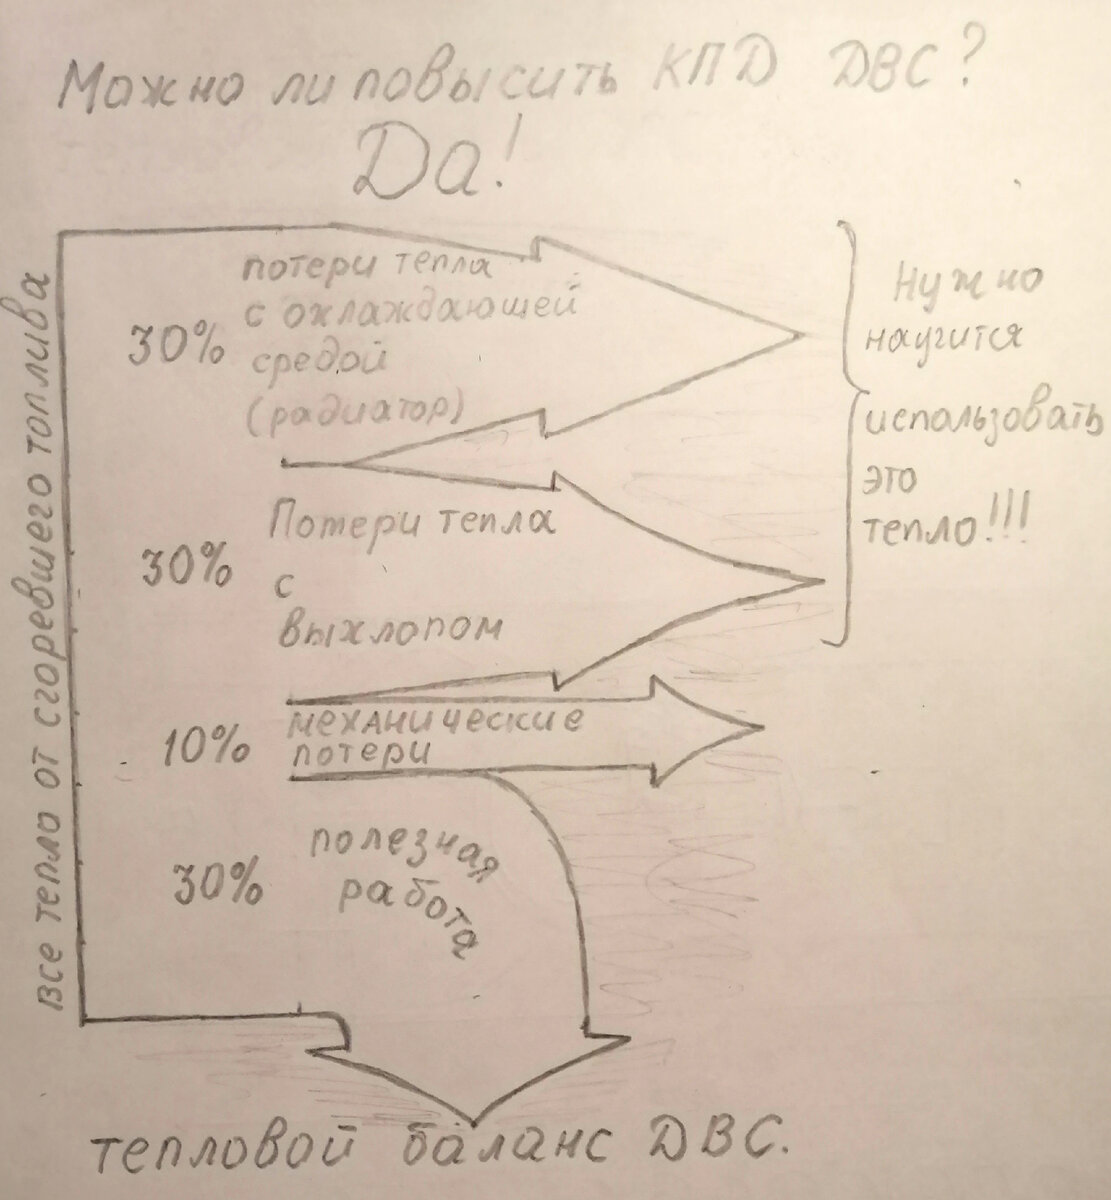 Можно ли повысить КПД ДВС?
Да!
все тепло от сгоревшего топлива
30%
потери тепла
с охлаждающей
средой
(радиатор)
30%
Потери тепла
с
выхлопом
10%
механические
потери
30%
полезная
работа
Нужно
научится
использовать
это
тепло!!!
тепловой баланс ДВС.